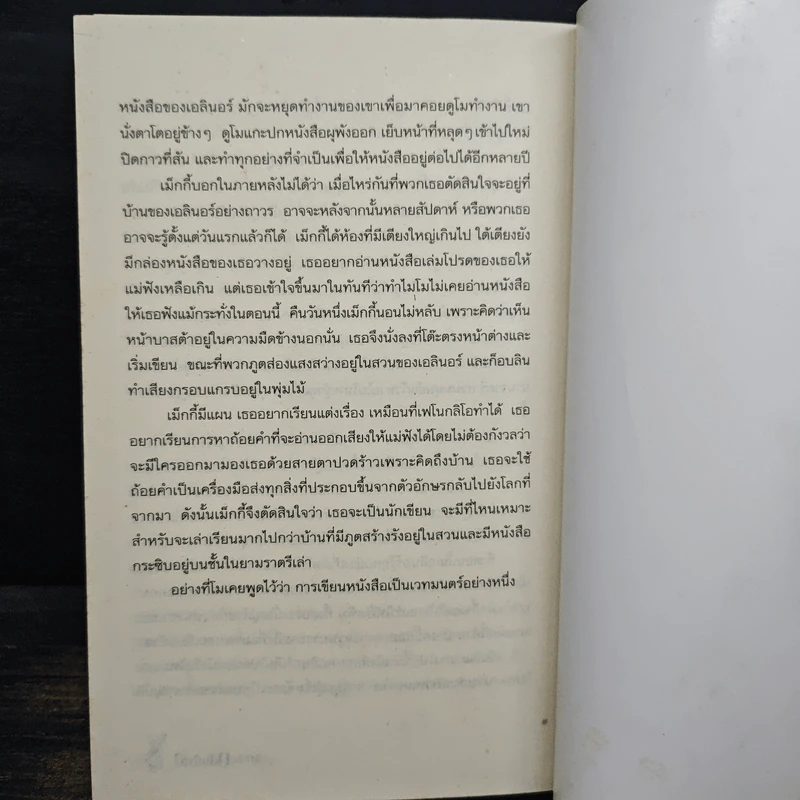 หนังสือของเอลินอร์ มักจะหยุดทำงานของเขาเพื่อมาคอยดูโมทำงาน เขา
นั่งตาโตอยู่ข้างๆ ดูโมแกะปกหนังสือผุพังออก เย็บหน้าที่หลุดๆ เข้าไปใหม่
ปิดกาวที่สัน และทำทุกอย่างที่จำเป็นเพื่อให้หนังสืออยู่ต่อไปได้อีกหลายปี
เม็กกี้บอกในภายหลังไม่ได้ว่า เมื่อไหร่กันที่พวกเธอตัดสินใจจะอยู่ที่
บ้านของเอลินอร์อย่างถาวร อาจจะหลังจากนั้นหลายสัปดาห์ หรือพวกเธอ
อาจจะรู้ตั้งแต่วันแรกแล้วก็ได้ เม็กกี้ได้ห้องที่มีเตียงใหญ่เกินไป ใต้เตียงยัง
มีกล่องหนังสือของเธอวางอยู่ เธออยากอ่านหนังสือเล่มโปรดของเธอให้
แม่ฟังเหลือเกิน แต่เธอเข้าใจขึ้นมาในทันทีว่าทำไมโมไม่เคยอ่านหนังสือ
ให้เธอฟังแม้กระทั่งในตอนนี้ คืนวันหนึ่งเม็กกี้นอนไม่หลับ เพราะคิดว่าเห็น
หน้าบาสต้าอยู่ในความมืดข้างนอกนั่น เธอจึงนั่งลงที่โต๊ะตรงหน้าต่างและ
เริ่มเขียน ขณะที่พวกภูตส่องแสงสว่างอยู่ในสวนของเอลินอร์ และก็อบลิน
ทำเสียงกรอบแกรบอยู่ในพุ่มไม้
เม็กกี้มีแผน เธออยากเรียนแต่งเรื่อง เหมือนที่เฟโนกลิโอทำได้ เธอ
อยากเรียนการหาถ้อยคำที่จะอ่านออกเสียงให้แม่ฟังได้โดยไม่ต้องกังวลว่า
จะมีใครออกมามองเธอด้วยสายตาปวดร้าวเพราะคิดถึงบ้าน เธอจะใช้
ถ้อยคำเป็นเครื่องมือส่งทุกสิ่งที่ประกอบขึ้นจากตัวอักษรกลับไปยังโลกที่
จากมา ดังนั้นเม็กกี้จึงตัดสินใจว่า เธอจะเป็นนักเขียน จะมีที่ไหนเหมาะ
สำหรับจะเล่าเรียนมากไปกว่าบ้านที่มีภูตสร้างรังอยู่ในสวนและมีหนังสือ
กระซิบอยู่บนชั้นในยามราตรีเล่า
อย่างที่โมเคยพูดไว้ว่า การเขียนหนังสือเป็นเวทมนตร์อย่างหนึ่ง